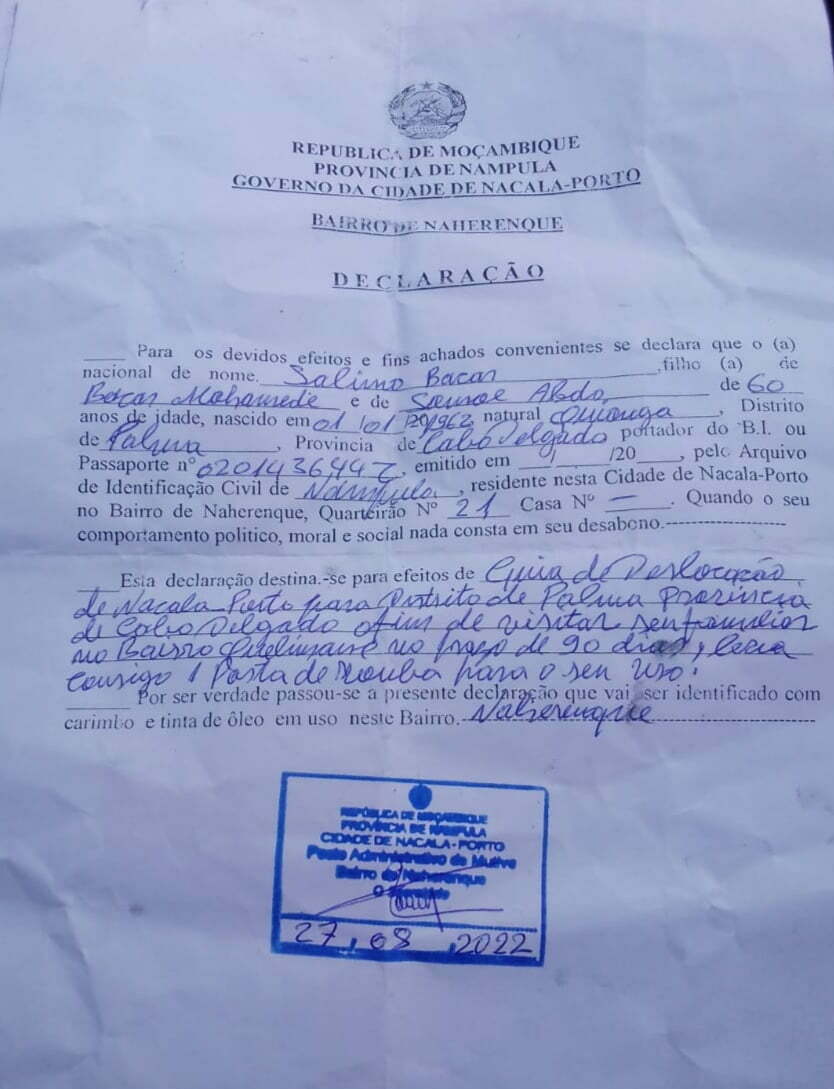 REPUBLICA DE MOÇAMBIQUE
PROVINCIA DE NAMPULA
GOVERNO DA CIDADE DE NACALA-PORTO
BAIRRO DE NAHERENQUE
DECLARAÇÃO
____ Para os devidos efeitos e fins achados convenientes se declara que o (a)
nacional de nome. Salimo Bacar ,filho (a) de
Bacar Mohamede e de Abdo de 60
anos de idade, nascido em 01/01/1962, natural Quionga, Distrito
de Palma, Provincia de Cabo Delgado portador do B.I. ou
Passaporte nº , emitido em __/__/20__, pelo Arquivo
de Identificação Civil de Nampula, residente nesta Cidade de Nacala-Porto
no Bairro de Naherenque, Quarteirão Nº 21 Casa Nº —. Quando o seu
comportamento politico, moral e social nada consta em seu desabono.---------------
____Esta declaração destina.-se para efeitos de Guia de Deslocação
de Nacala Porto para Distrito de Palma Provincia
de Cabo Delgado afim de visitar seu familiar
no Bairro no prazo de 90 dias, leva
consigo 1 Pasta de rouba para o seu uso.
____ Por ser verdade passou-se a presente declaração que vai ser identificado com
carimbo e tinta de óleo em uso neste Bairro. Naherenque
REPÚBLICA DE MOÇAMBIQUE
PROVÍNCIA DE NAMPULA
CIDADE DE NACALA-PORTO
Posto Administrativo de Mutiva
Bairro de Naherenque
27, 08, 2022